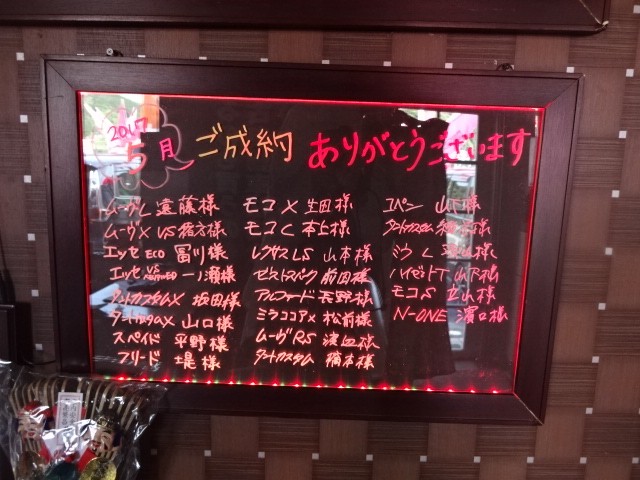 2017
5月 ご成約 ありがとうございます
ムーヴL 遠藤様
ムーヴX VS 緒方様
エッセ ECO 冨川様
エッセ VS 一ノ瀬様
タントカスタムX 坂田様
タントカスタムX 山口様
スペイド 平野様
フリード 堤様
モコX 生田様
モコC 本上様
レクサスLS 山本様
ゼストスパーク 前田様
アルファード 長野様
ミラココアX 松前様
ムーヴRS 渡辺様
タントカスタム 橋本様
コペン 山下様
タントカスタム 様
ミラL 様
ハイゼットT 山下様
モコS 立山様
N-ONE 濱口様